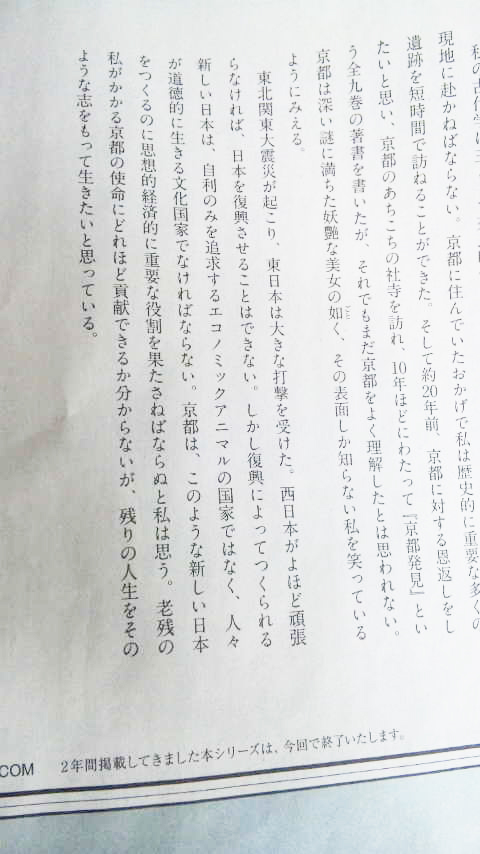 現地に赴かねばならない。京都に住んでいたおかげで私は歴史的に重要な多くの
遺跡を短時間で訪ねることができた。そして約20年前、京都に対する恩返しをし
たいと思い、京都のあちこちの社寺を訪れ、10年ほどにわたって『京都発見』とい
う全九巻の著書を書いたが、それでもまだ京都をよく理解したとは思われない。
京都は深い謎に満ちた妖艶な美女の如く、その表面しか知らない私を笑っている
ようにみえる。
東北関東大震災が起こり、東日本は大きな打撃を受けた。西日本がよほど頑張
らなければ、日本を復興させることはできない。しかし復興によってつくられる
新しい日本は、自利のみを追求するエコノミックアニマルの国家ではなく、人々
が道徳的に生きる文化国家でなければならない。京都は、このような新しい日本
をつくるのに思想的経済的に重要な役割を果たさねばならぬと私は思う。老残の
私がかかる京都の使命にどれほど貢献できるか分からないが、残りの人生をその
ような志をもって生きたいと思っている。
COM
2年間掲載してきました本シリーズは、今回で終了いたします。